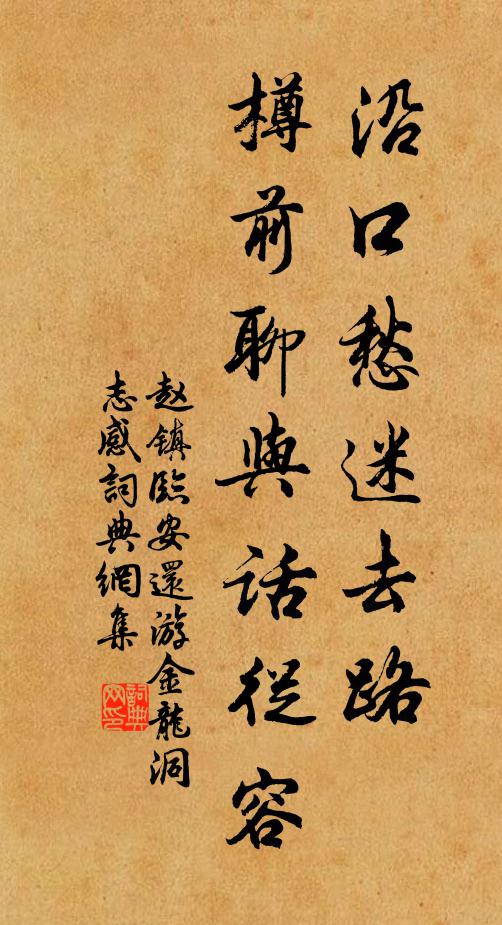 沿口愁迷去路
樽前聊與话從容
赵镇臨安還游金龍洞
志感詞典網集
詞典
网印